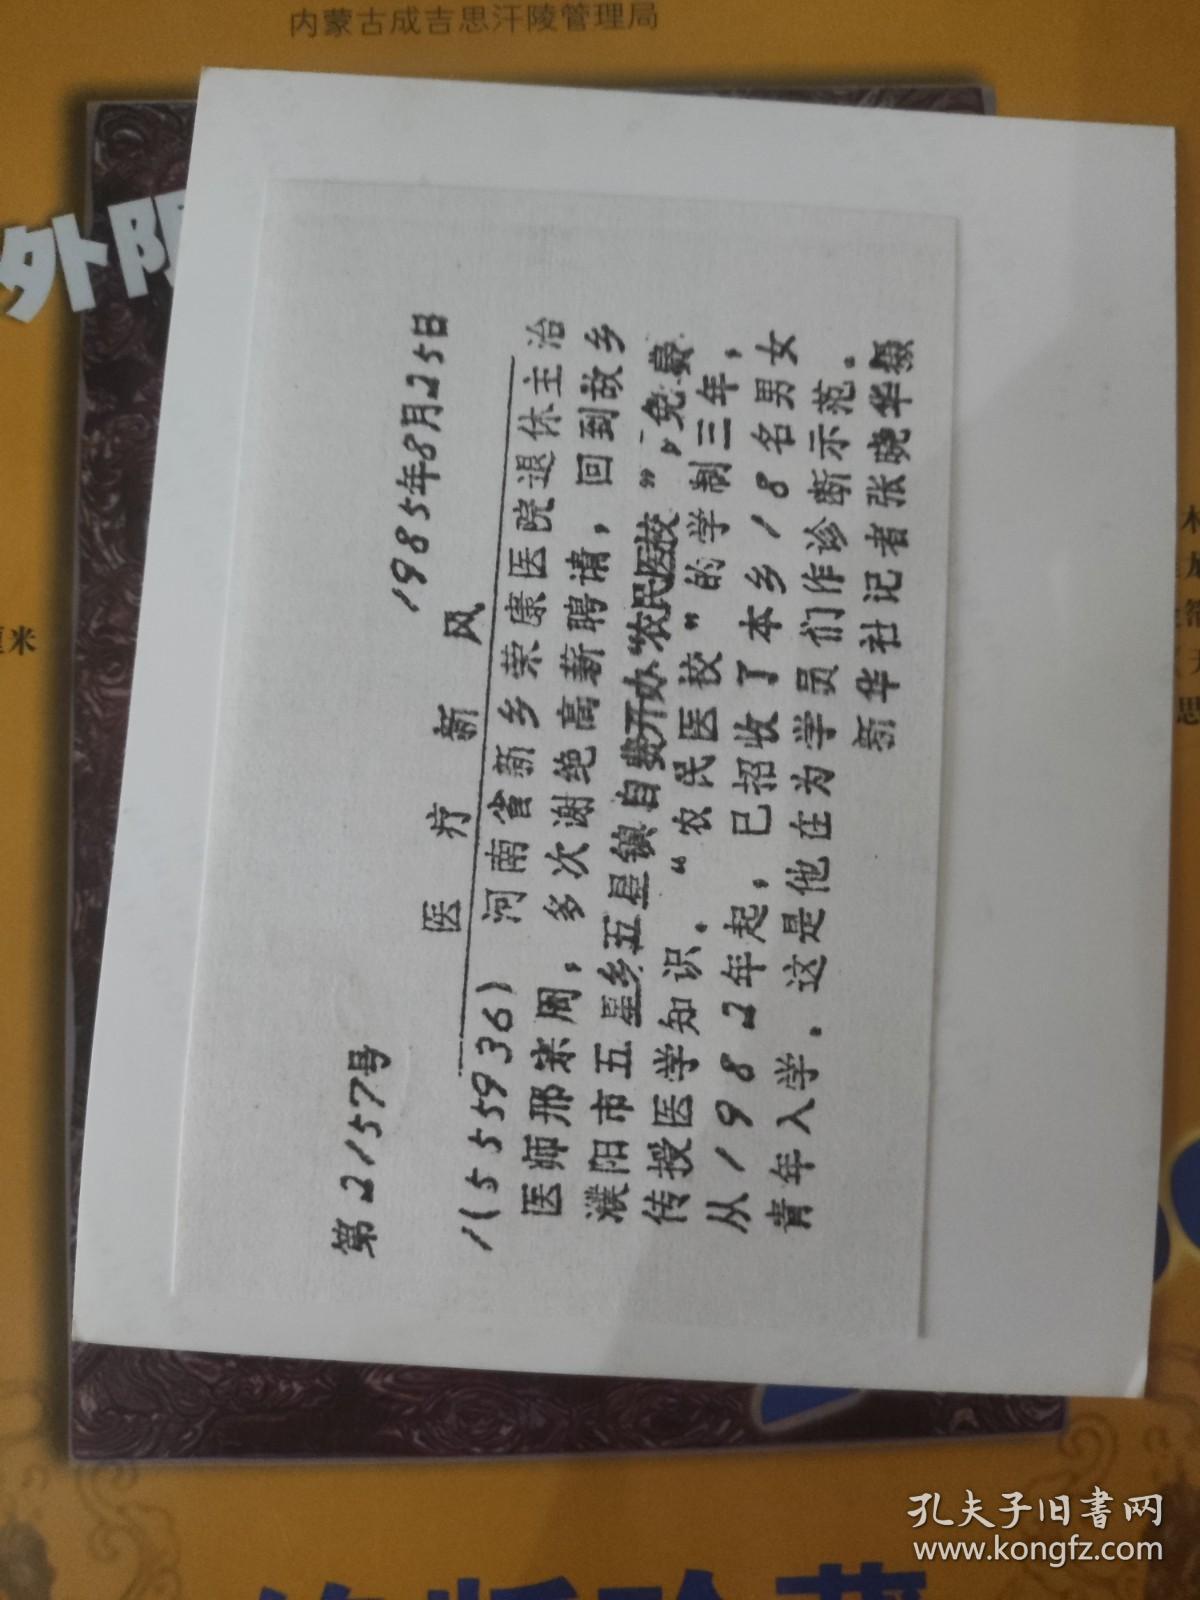 内蒙古成吉思汗陵管理局
外阴
厘米
第2157号
1985年8月25日
医疗新风
1(55936) 河南省新乡荣康医院退休主治
医师邢宋周，多次谢绝高薪聘请，回到故乡
濮阳市五星乡五星镇自费开办“农民医校”，免费
传授医学知识。“农民医校”的学制三年，
从1982年起，已招收了本乡18名男女
青年入学。这是他在为学员们作诊断示范。
新华社记者张晓华摄
孔夫子旧书网
www.kongfz.com